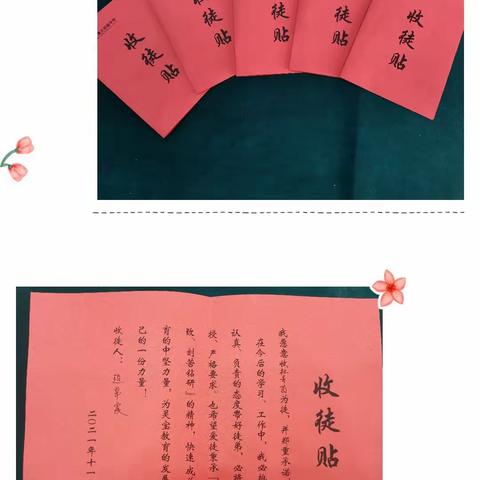 收徒贴
收徒贴
收徒贴
收徒贴
收徒贴
收徒贴
我愿意收
为徒，并郑重承诺
在今后的学习、工作中，我必
认真、负责的态度带好徒弟，必将
授、严格要求。也希望爱徒秉承
致、刻苦钻研”的精神，快速成
育的中坚力量，为灵宝教育的发展
己的一份力量！
收徒人：
二〇二一年十一